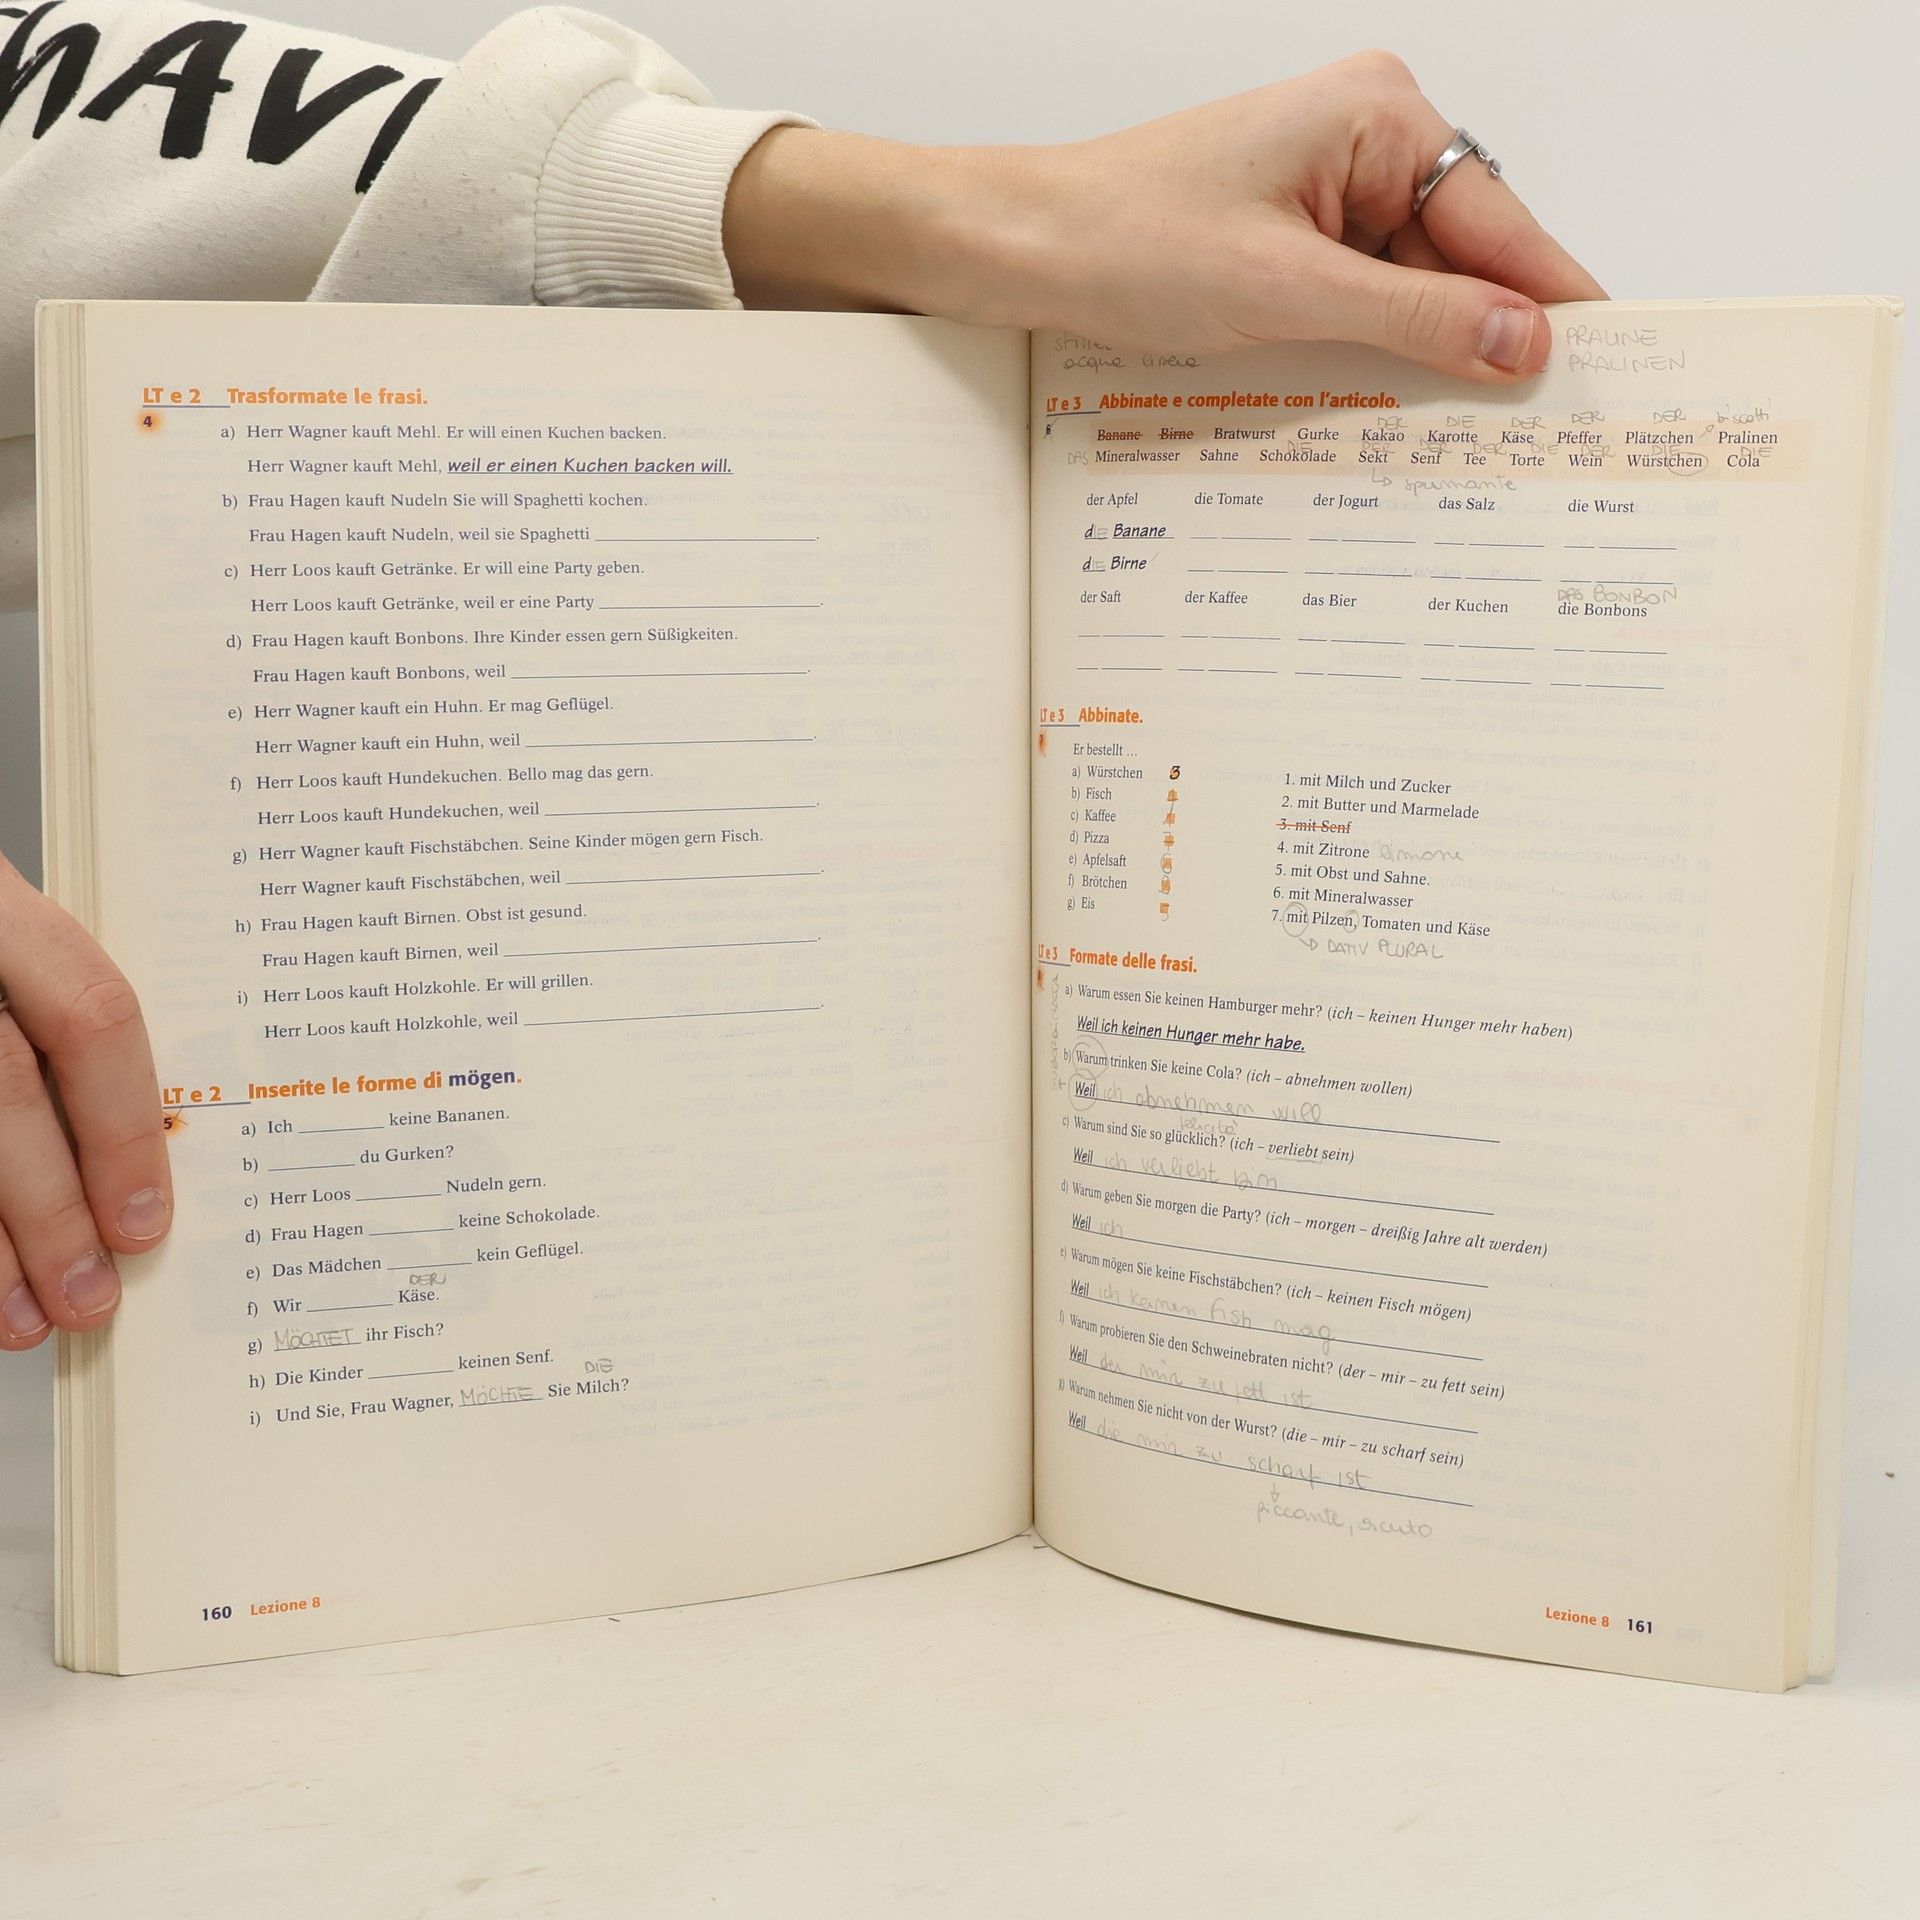 HAVI
LT e 2 Trasformate le frasi.
4
a) Herr Wagner kauft Mehl. Er will einen Kuchen backen.
Herr Wagner kauft Mehl, weil er einen Kuchen backen will.
b) Frau Hagen kauft Nudeln Sie will Spaghetti kochen.
Frau Hagen kauft Nudeln, weil sie Spaghetti ____.
c) Herr Loos kauft Getränke. Er will eine Party geben.
Herr Loos kauft Getränke, weil er eine Party ____.
d) Frau Hagen kauft Bonbons. Ihre Kinder essen gern Süßigkeiten.
Frau Hagen kauft Bonbons, weil ____.
e) Herr Wagner kauft ein Huhn. Er mag Geflügel.
Herr Wagner kauft ein Huhn, weil ____.
f) Herr Loos kauft Hundekuchen. Bello mag das gern.
Herr Loos kauft Hundekuchen, weil ____.
g) Herr Wagner kauft Fischstäbchen. Seine Kinder mögen gern Fisch.
Herr Wagner kauft Fischstäbchen, weil ____.
h) Frau Hagen kauft Birnen. Obst ist gesund.
Frau Hagen kauft Birnen, weil ____.
i) Herr Loos kauft Holzkohle. Er will grillen.
Herr Loos kauft Holzkohle, weil ____.
LT e 2 Inserite le forme di mögen.
5
a) Ich ____ keine Bananen.
b) ____ du Gurken?
c) Herr Loos ____ Nudeln gern.
d) Frau Hagen ____ keine Schokolade.
e) Das Mädchen ____ kein Geflügel.
DER
f) Wir ____ Käse.
g) MÖCHTET ihr Fisch?
h) Die Kinder ____ keinen Senf.
DIE
i) Und Sie, Frau Wagner, MÖCHTE Sie Milch?
160 Lezione 8
PRALINE
acqua PRALINEN
LT e 3 Abbinate e completate con l'articolo.
6
DER DIE DER DER DER biscotti
Banane Birne Bratwurst Gurke Kakao Karotte Käse Pfeffer Plätzchen Pralinen
DIE DER DER DER DIE DER DIE DIE
DAS Mineralwasser Sahne Schokolade Sekt Senf Tee Torte Wein Würstchen Cola
spumante
der Apfel die Tomate der Jogurt das Salz die Wurst
die Banane
die Birne
DAS BONBON
der Saft der Kaffee das Bier der Kuchen die Bonbons
LT e 3 Abbinate.
7
Er bestellt ...
a) Würstchen 3
b) Fisch 4
c) Kaffee 1
d) Pizza 7
e) Apfelsaft 6
f) Brötchen 2
g) Eis 5
1. mit Milch und Zucker
2. mit Butter und Marmelade
3. mit Senf
4. mit Zitrone limone
5. mit Obst und Sahne.
6. mit Mineralwasser
7. mit Pilzen, Tomaten und Käse
DATIV PLURAL
LT e 3 Formate delle frasi.
8
a) Warum essen Sie keinen Hamburger mehr? (ich – keinen Hunger mehr haben)
Weil ich keinen Hunger mehr habe.
b) Warum trinken Sie keine Cola? (ich – abnehmen wollen)
Weil ich abnehmen will
c) Warum sind Sie so glücklich? (ich – verliebt sein)
Weil ich verliebt bin
d) Warum geben Sie morgen die Party? (ich – morgen – dreißig Jahre alt werden)
Weil ich
e) Warum mögen Sie keine Fischstäbchen? (ich – keinen Fisch mögen)
Weil ich keinen Fish mag
f) Warum probieren Sie den Schweinebraten nicht? (der – mir – zu fett sein)
Weil der mir zu fett ist
g) Warum nehmen Sie nicht von der Wurst? (die – mir – zu scharf sein)
Weil die mir zu scharf ist
piccante, acuto
Lezione 8 161